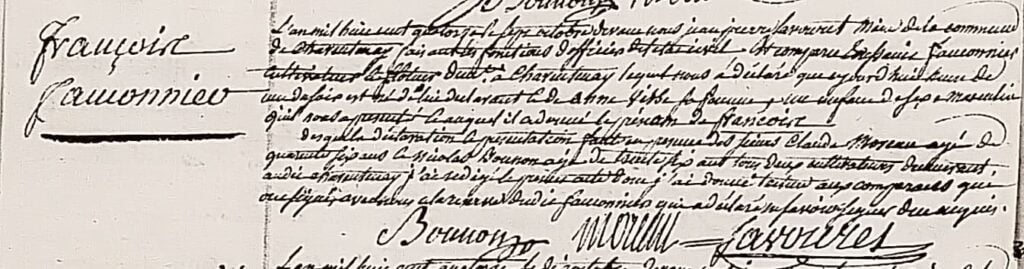 Françoise
Fauconnier
L'an mil huit cent quatorze le sept octobre devant nous jean pierre favouret Maire de la commune
de Charentenay faisant les fonctions d'officier de l'etat civil est comparu Fauconnier
cultivateur à Charentenay lequel nous a déclaré que aujourd'huie de
est né de lui declarant & de anne sa femme, un enfant de sexe masculin
qu'il nous a présenté & auquel il a donné le prenom de francoise
desquelle déclaration & présentation faite en présence des sieurs Claude Moreau agé de
quarante six ans & Nicolas Bounon agé de trente six ans tous deux cultivateurs demeurant
audit Charentenay j'ai redigé le présent acte dont j'ai donné lecture aux comparans que
ont signé avec nous a la reserve dudit fauconnier que a déclaré ne savoir signer de ce requis.
Bounon Moreau favouret
L'an mil huit cent quatorze le